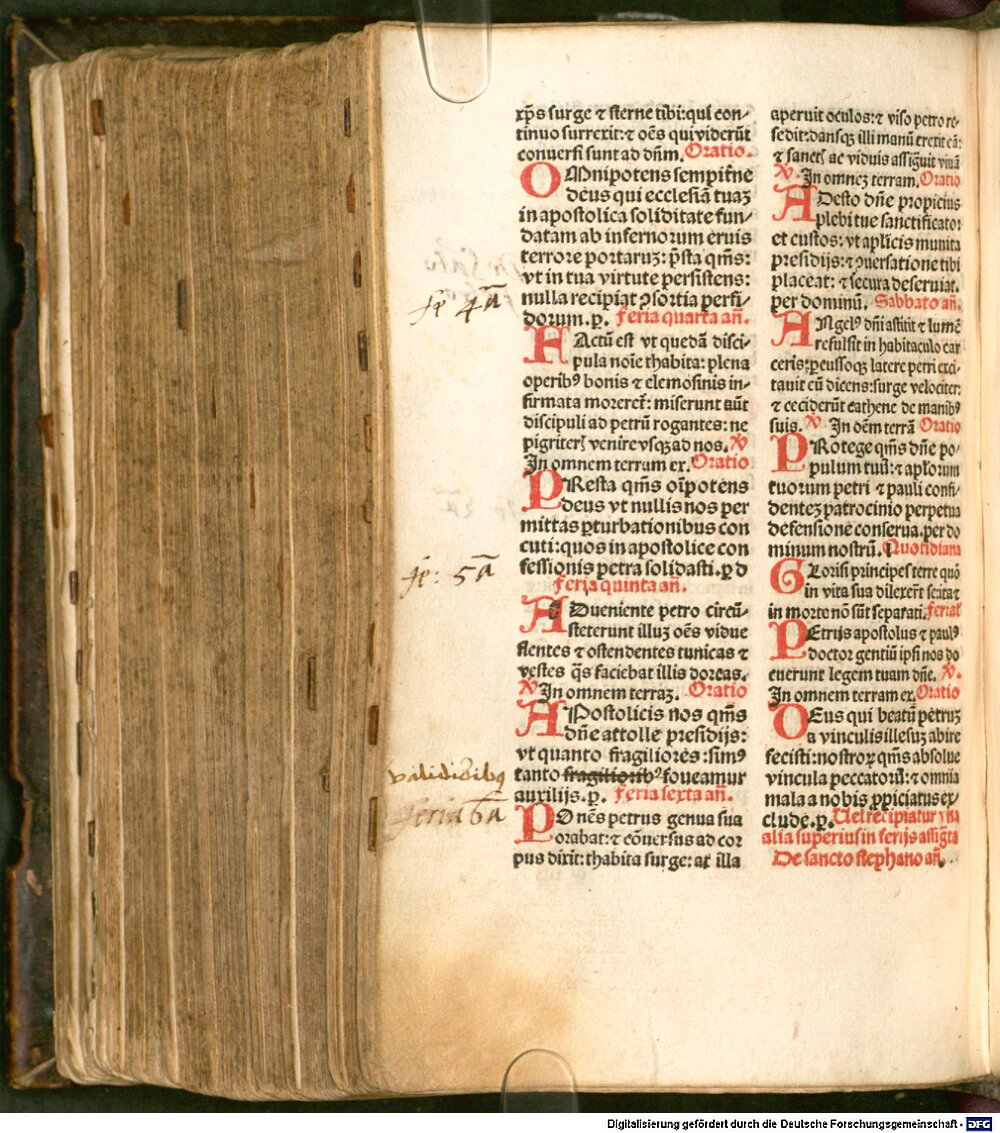 xp̄s surge ⁊ sterne tibi: qui con-
tinuo surrexit: ⁊ oēs qui viderūt
conuersi sunt ad dn̄m. Oratio.
OMnipotens sempit̄ne
deus qui ecclesiā tuaʒ
in apostolica soliditate fun-
datam ab infernorum eruis
terrore portaruʒ: p̄sta qm̄s:
vt in tua virtute persistens:
nulla recipiat ꝯsortia perfi-
dorum. p. Feria quarta añ.
FActū est vt quedā disci-
pula noīe thabita: plena
operibꝰ bonis ⁊ elemosinis in-
firmata moreret᷑: miserunt aūt
discipuli ad petrū rogantes: ne
pigriteris venire vsqꝫ ad nos. ℣
In omnem terram ex. Oratio
PResta qm̄s oīpotens
deus vt nullis nos per
mittas ꝑturbationibus con
cuti: quos in apostolice con
fessionis petra solidasti. p d
Feria quinta añ.
ADueniente petro circū-
steterunt illuʒ oēs vidue
flentes ⁊ ostendentes tunicas ⁊
vestes q̄s faciebat illis dorcas.
℣ In omnem terraʒ. Oratio
APostolicis nos qm̄s
dn̄e attolle presidijs:
vt quanto fragiliores: simꝰ
tanto fragiliorib⁹ foueamur
auxilijs. p. Feria sexta añ.
POnēs petrus genua sua
orabat: ⁊ cōuersus ad cor
pus dixit: thabita surge: at illa
fe 4ᵃ
fe: 5ᵃ
validioribꝫ
feria 6ᵃ
aperuit oculos: ⁊ viso petro re-
sedit: dansqꝫ illi manū erexit eā:
⁊ sanctis ac viduis assig̃uit viuā
℣. In omneʒ terram. Oratio
ADesto dn̄e propicius
plebi tue sanctificator
et custos: vt aplīcis munita
presidijs: ⁊ ꝯuersatione tibi
placeat: ⁊ secura deseruiat.
per dominū. Sabbato añ.
ANgelꝰ dn̄i astitit ⁊ lumē
refulsit in habitaculo car
ceris: ꝑcussoqꝫ latere petri exci-
tauit eū dicens: surge velociter:
⁊ ceciderūt cathene de manibꝰ
suis. ℣ In oēm terrā Oratio
PRotege qm̄s dn̄e po-
pulum tuū: ⁊ apl̄orum
tuorum petri ⁊ pauli confi-
denteʒ patrocinio perpetua
defensione conserua. per do
minum nostrū. Quotidiana
GLoriosi principes terre quō
in vita sua dilexerūt se ita ⁊
in morte nō sūt separati. ferial̄
PEtrus apostolus ⁊ paulꝰ
doctor gentiū ipsi nos do
cuerunt legem tuam dn̄e. ℣.
In omnem terram ex. Oratio
DEus qui beatū petruʒ
a vinculis illesuʒ abire
fecisti: nostroꝝ qm̄s absolue
vincula peccatorū: ⁊ omnia
mala a nobis ꝓpiciatus ex-
clude. p. Uel recipiatur vna
alia superius in ferijs assig̃ta
De sancto stephano añ.
Digitalisierung gefördert durch die Deutsche Forschungsgemeinschaft - DFG